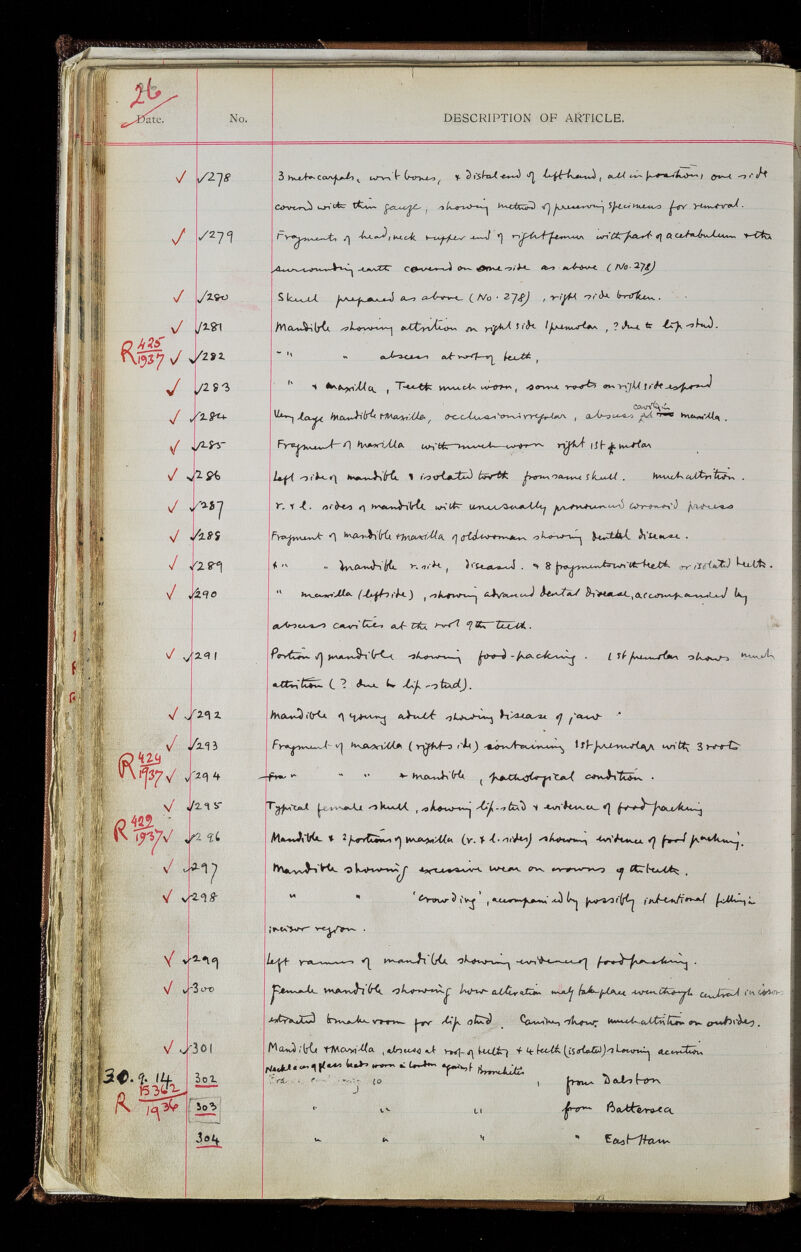 26
Date. No. DESCRIPTION OF ARTICLE.
√ √278 3 metacarpals, wrist bones, & distal end of left hand, all in position, one side
covered with thin gauze, showing method of preserving specimens for removal.
√ √279 Fragments of head, neck & upper end of right femur with part of acetabulum & the
surrounding earth covered on one side as above (No. 278)
√ √280 Skull prepared as above (No. 278), right side broken.
√ √281 Mandible showing attrition on right side 1 premolar, ? due to lip-stud.
R 425/1937 √ √282 " " abscess at root of teeth,
√ √283 " & maxilla, Teeth much worn, some roots on right side exposed
√ √284 Very large mandible & maxilla, occlusion irregular, abscess cavity in maxilla.
√ √285 Fragment of maxilla with much worn right 1st molar
√ √286 Left side of mandible & isolated tooth from same skull. Much attrition.
√ √287 r. & l. sides of mandible with unusually pronounced coronoid process
√ √288 Fragment of mandible & maxilla of old woman showing dental disease.
√ √289 " " mandible r. side, diseased. & 8 fragments with teeth or isolated teeth.
√ √290 " maxilla (left side), showing advanced dental disease, accompanied by
abscess cavities at the root of the teeth.
√ √291 Portion of mandible showing food-packing. 1st premolar shows much
attrition (? due to lip-stud).
√ √292 Mandible of young adult showing disease of jaw
√ √293 Fragment of maxilla (right side) containing 1st premolar with 3 roots
R 424/1937 √ √294 " " " & mandible, pathological condition.
√ √295 Typical female skull, showing lip-stud & evidence of food packing
R 429/1937 √ √296 Mandible & 2 portions of maxilla (r. & l. sides) showing evidence of food packing.
√ √297 Mandible showing excessive wear on crowns of the teeth.
√ √298 " " 'crowding', accompanied by possibly intentional filling in
incisor region.
√ √299 Left ramus of mandible showing evidence of food packing.
√ √300 Female mandible showing how alteration may take place even though central incisors
extracted to make room for lip stud. Canines show much attrition on outsides.
√ √301 Mandible & maxilla, abscess at root of teeth, & 4 teeth (isolated) showing accretion
30.9.14 302 Necklace of glass beads worn in London against Bronchitis, from Dalston
R 15362/1936 303 " " " from Battersea
304 " " " " East Ham